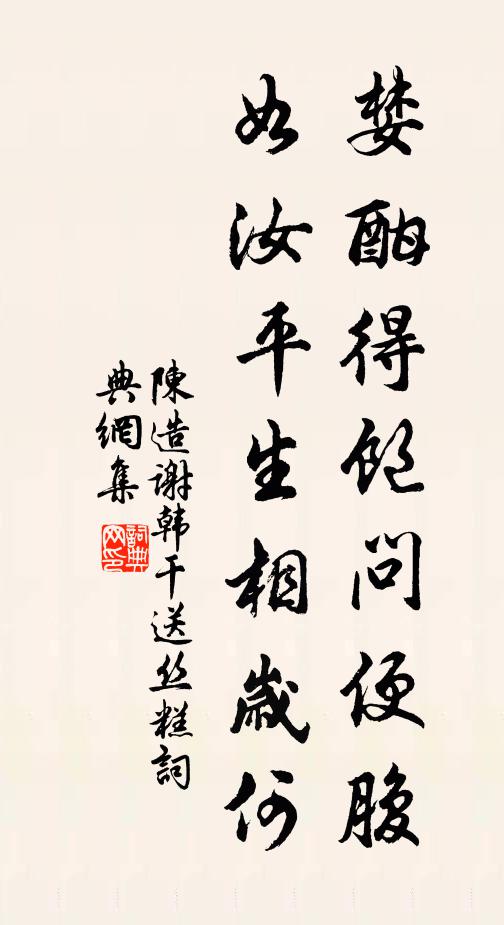 婪酣得飽問便腹
如汝平生相歲何
陳造謝韩干送丝糕詞
典網集
詞典
网印